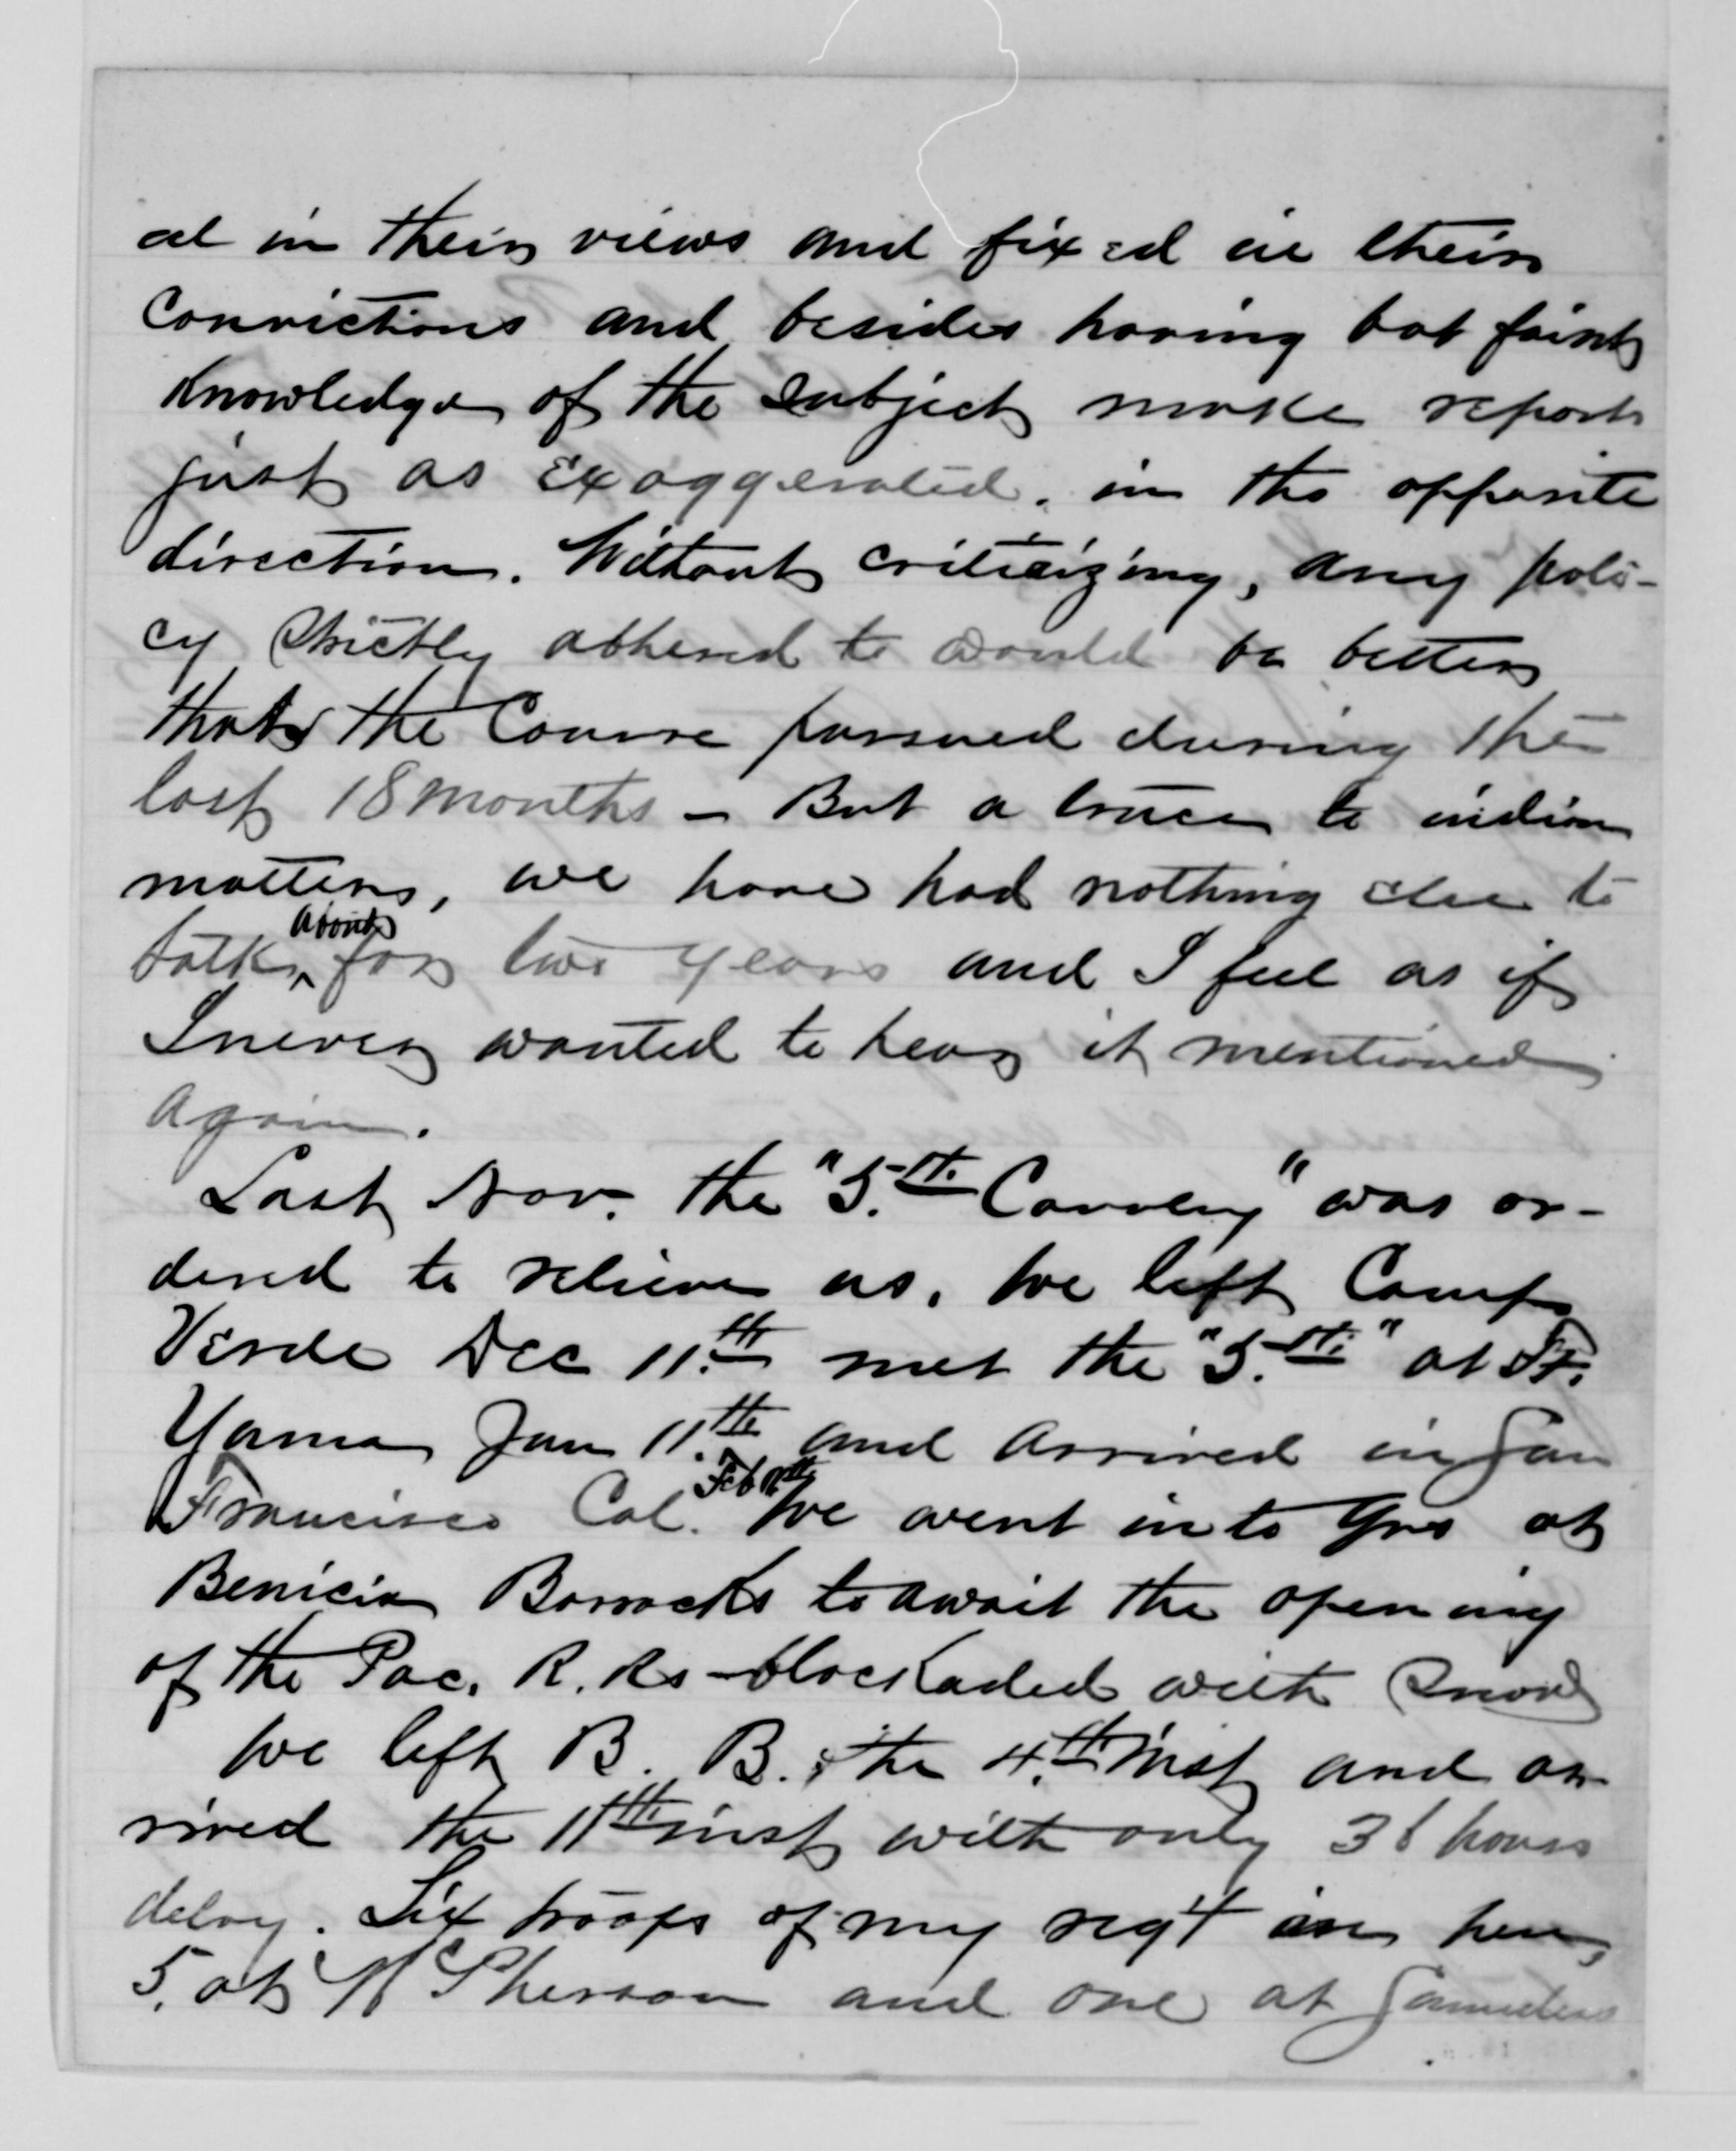 al in their views and fixed in their
convictions and besides having but faint
knowledge of the subject make reports
just as exaggerated, in the opposite
direction. Without criticizing, any poli-
cy strictly adhered to would be better
than the course pursued during the
last 18 months – But a truce to indian
matters, we have had nothing else to
talk about for two years and I feel as if
I never wanted to hear it mentioned
again.
Last Nov. the "5.th Cavalry" was or-
dered to relieve us. We left Camp
Verde Dec 11.th met the "5.th" at Ft.
Yuma Jan 11.th and arrived in San
Francisco Cal. Feb We went into Qrs at
Benicia Barracks to await the opening
of the Pac. R. Rs – blockaded with snow
We left B. B. the 4.th inst and ar-
rived the 11th inst with only 36 hours
delay. Six troops of my reg't are here,
5, at McPherson and one at Sanders